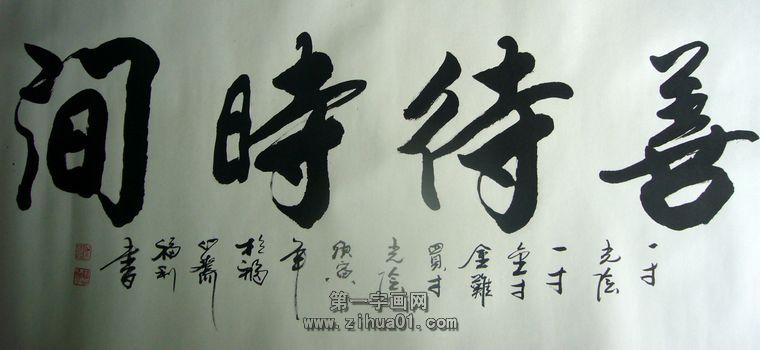 善待時間
一寸
光陰
一寸
金寸
金難
買寸
光陰
庚寅
年
書
第一字画网
www.zihua01.com